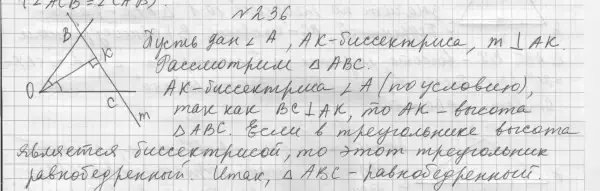 ∠ACB = ∠CAB).
№236
Пусть дан ∠A, AK-биссектриса, m ⊥ AK.
Рассмотрим △ ABC.
AK-биссектриса ∠A (по условию),
так как BC⊥AK, то AK - высота
△ABC. Если в треугольнике высота
является биссектрисой, то этот треугольник
равнобедренный. Итак, △ ABC - равнобедренный.
B
K
O
C
m